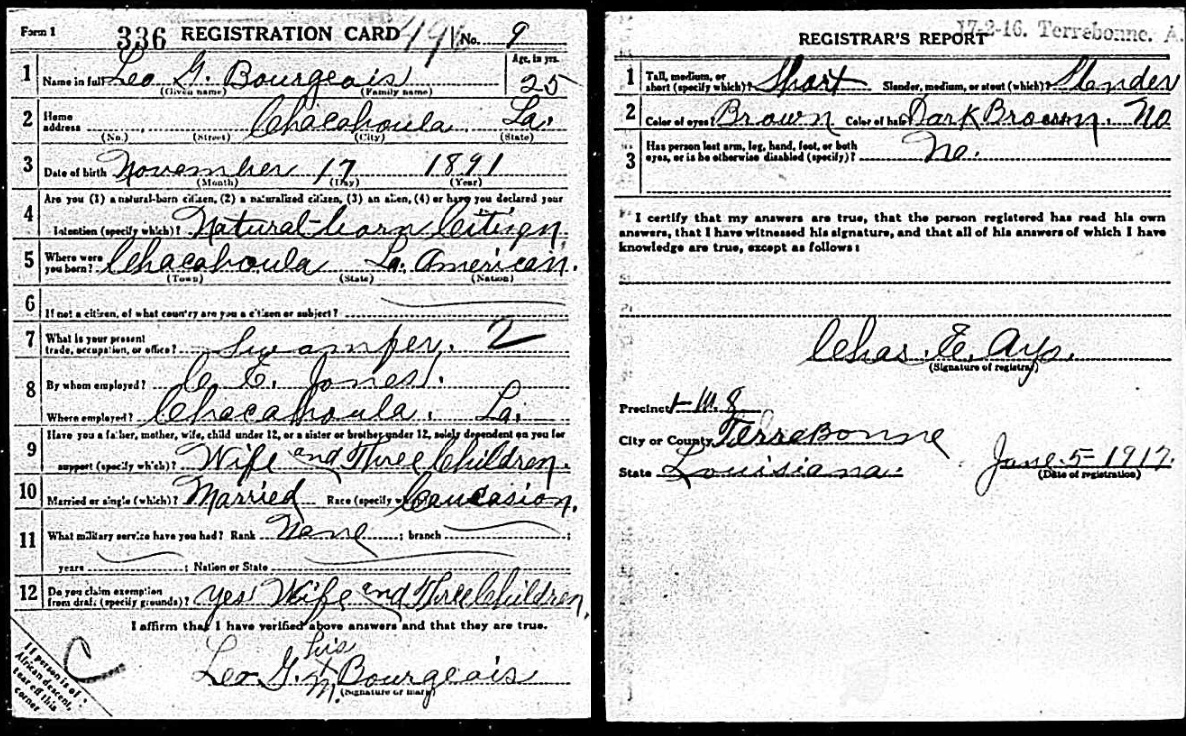 Form 1 336 REGISTRATION CARD No. 9
1 Name in full Leo G. Bourgeois Age, in yrs. 25
(Given name) (Family name)
2 Home address Chacahoula La.
(No.) (Street) (City) (State)
3 Date of birth November 17 1891
(Month) (Day) (Year)
4 Are you (1) a natural-born citizen, (2) a naturalized citizen, (3) an alien, (4) or have you declared your
intention (specify which)? Natural-born Citizn.
5 Where were you born? Chacahoula La. American.
(Town) (State) (Nation)
6 If not a citizen, of what country are you a citizen or subject?
7 What is your present trade, occupation, or office? Swamper. 2
8 By whom employed? C. E. Jones.
Where employed? Chacahoula. La.
9 Have you a father, mother, wife, child under 12, or a sister or brother under 12, solely dependent on you for
support (specify which)? Wife and Three Children.
10 Married or single (which)? Married Race (specify which)? Caucasion.
11 What military service have you had? Rank None ; branch ;
years ; Nation or State
12 Do you claim exemption from draft (specify grounds)? Yes Wife and Three Children.
I affirm that I have verified above answers and that they are true.
his
Leo G. X Bourgeois
M. (Signature or mark)
If person is of African descent, tear off this corner
C
17-2-16. Terrebonne. A.
REGISTRAR'S REPORT
1 Tall, medium, or short (specify which)? Short Slender, medium, or stout (which)? Slender
2 Color of eyes? Brown Color of hair? Dark Brown. No
3 Has person lost arm, leg, hand, foot, or both
eyes, or is he otherwise disabled (specify)? No.
I certify that my answers are true, that the person registered has read his own
answers, that I have witnessed his signature, and that all of his answers of which I have
knowledge are true, except as follows:
Chas. E. Ays.
(Signature of registrar)
Precinct
City or County TerreBonne
State Louisiana. June-5-1917.
(Date of registration)